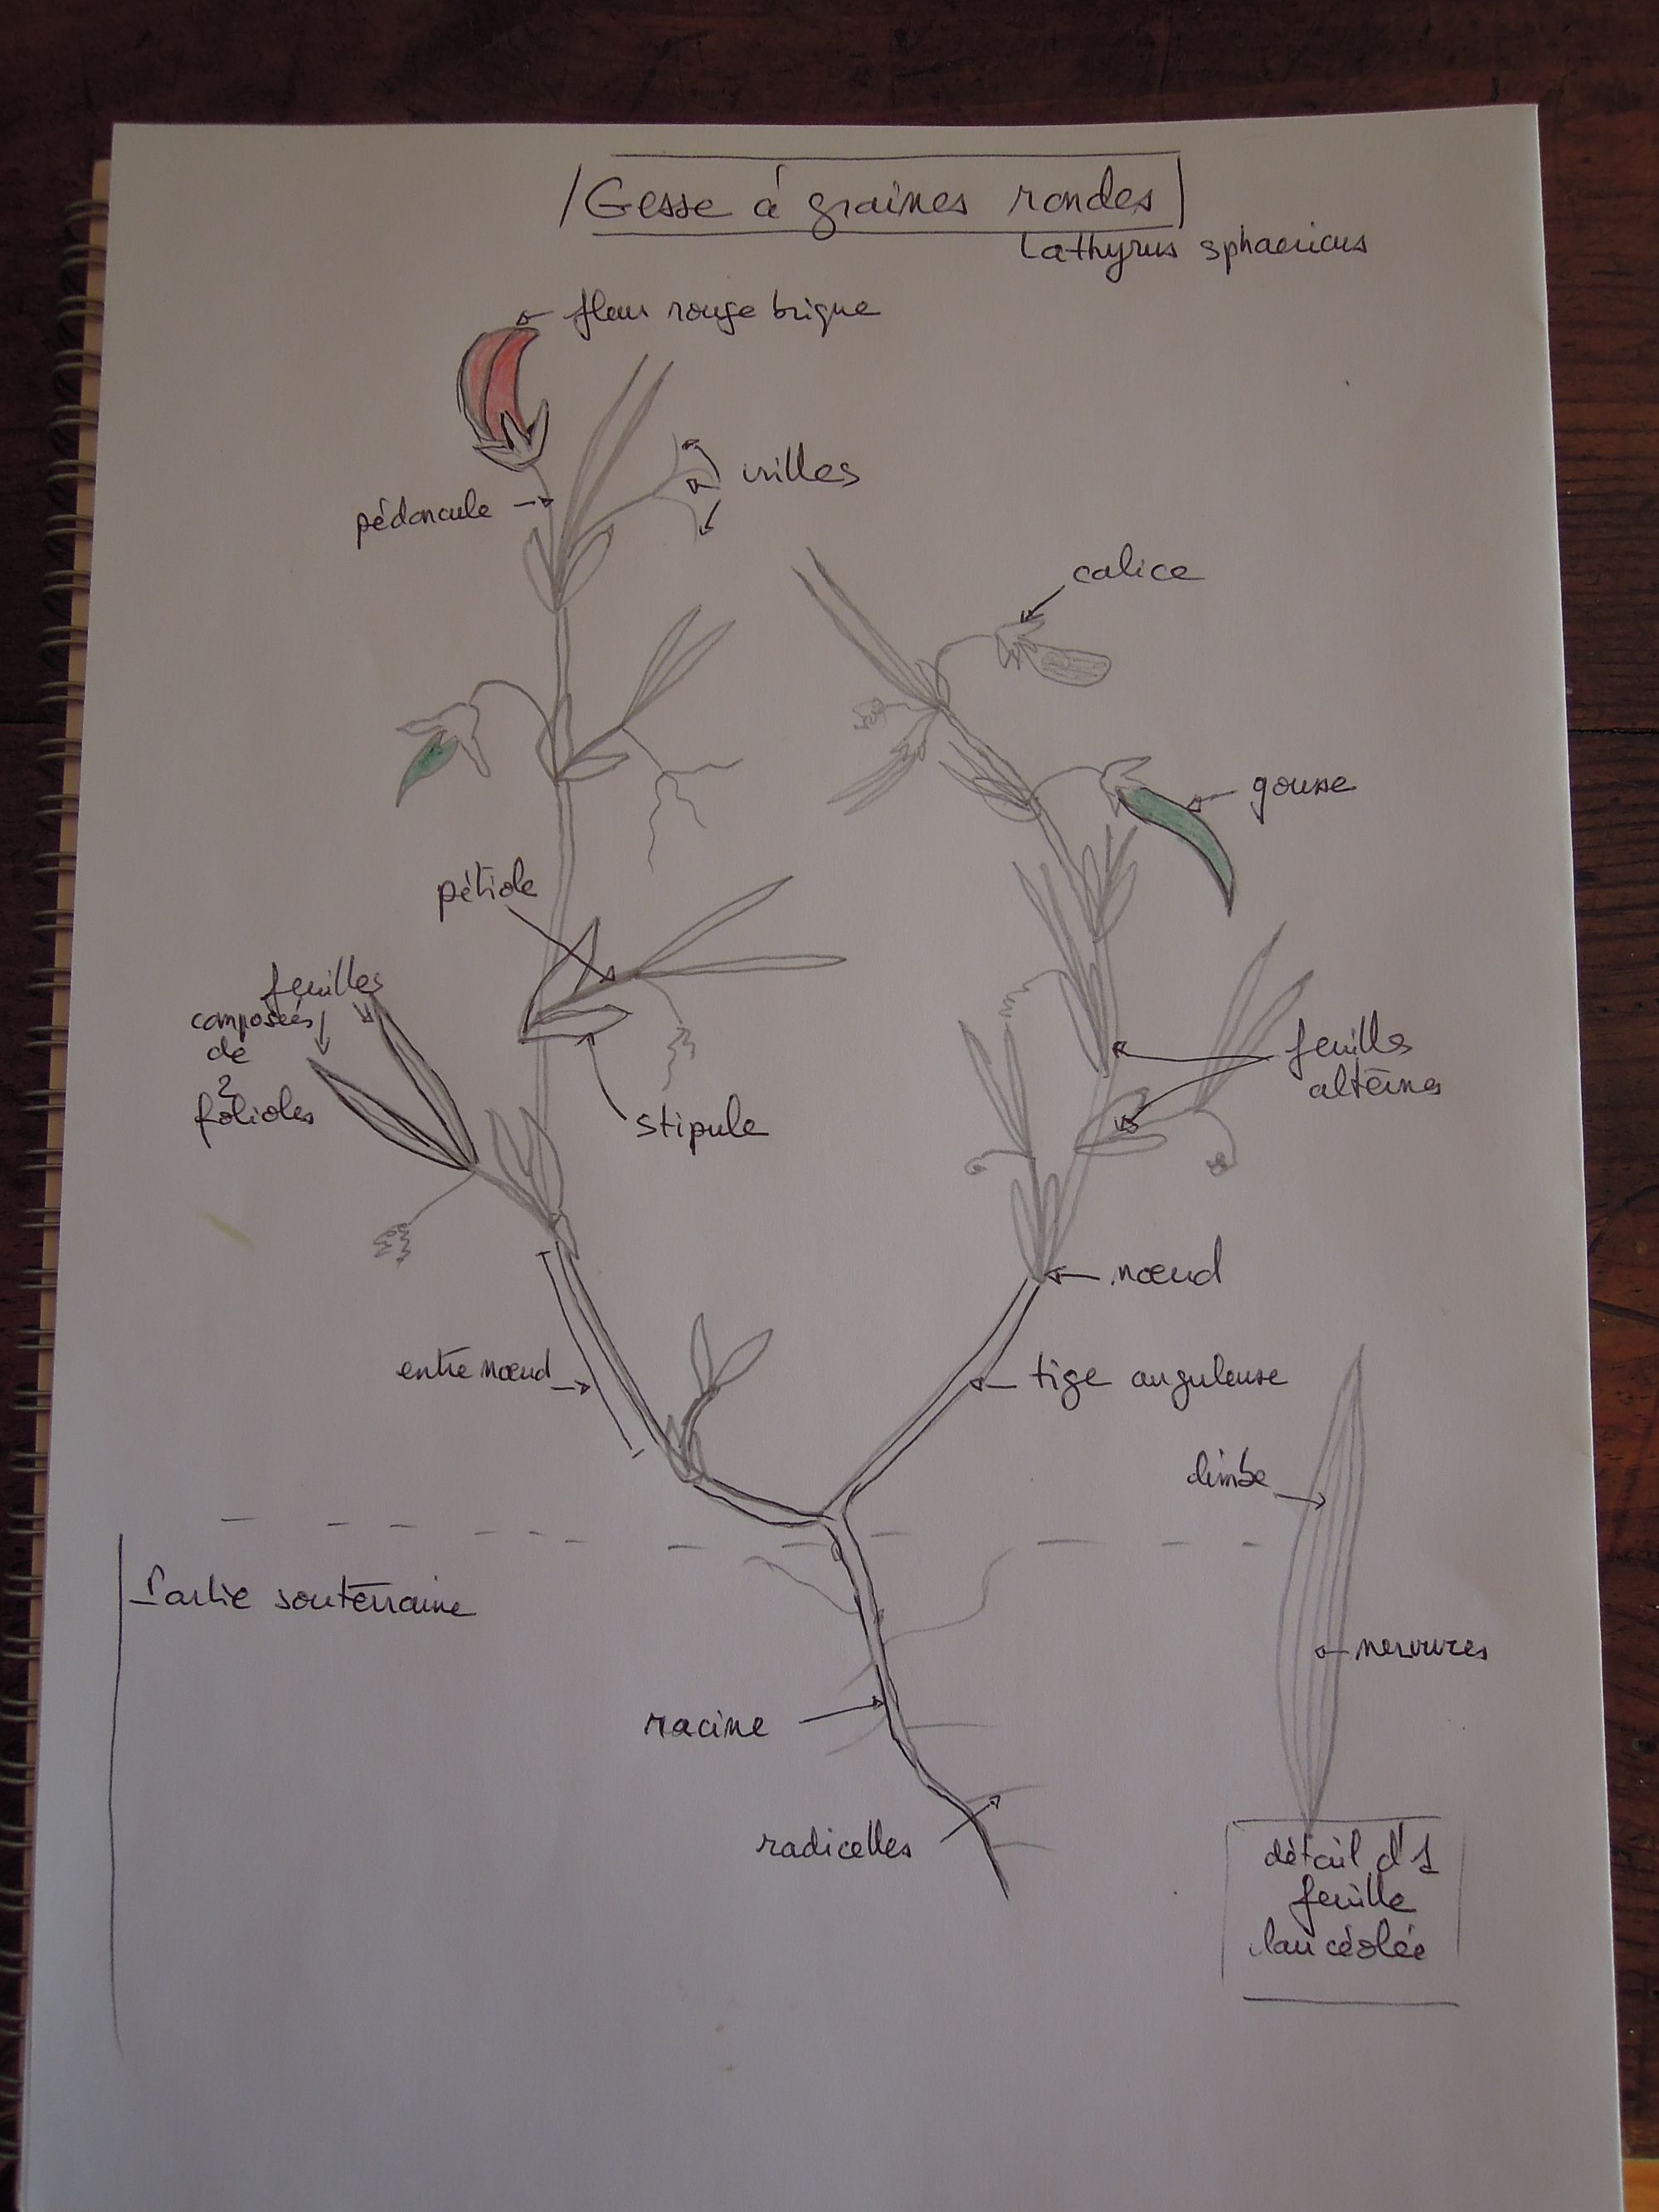 Gesse à graines rondes
Lathyrus sphaericus
fleur rouge brique
vrilles
pédoncule
calice
gousse
pétiole
feuilles
composées
de
2
folioles
stipule
feuilles
alternes
nœud
entre nœud
tige anguleuse
limbe
Partie souterraine
nervures
racine
radicelles
détail d'1
feuille
lancéolée